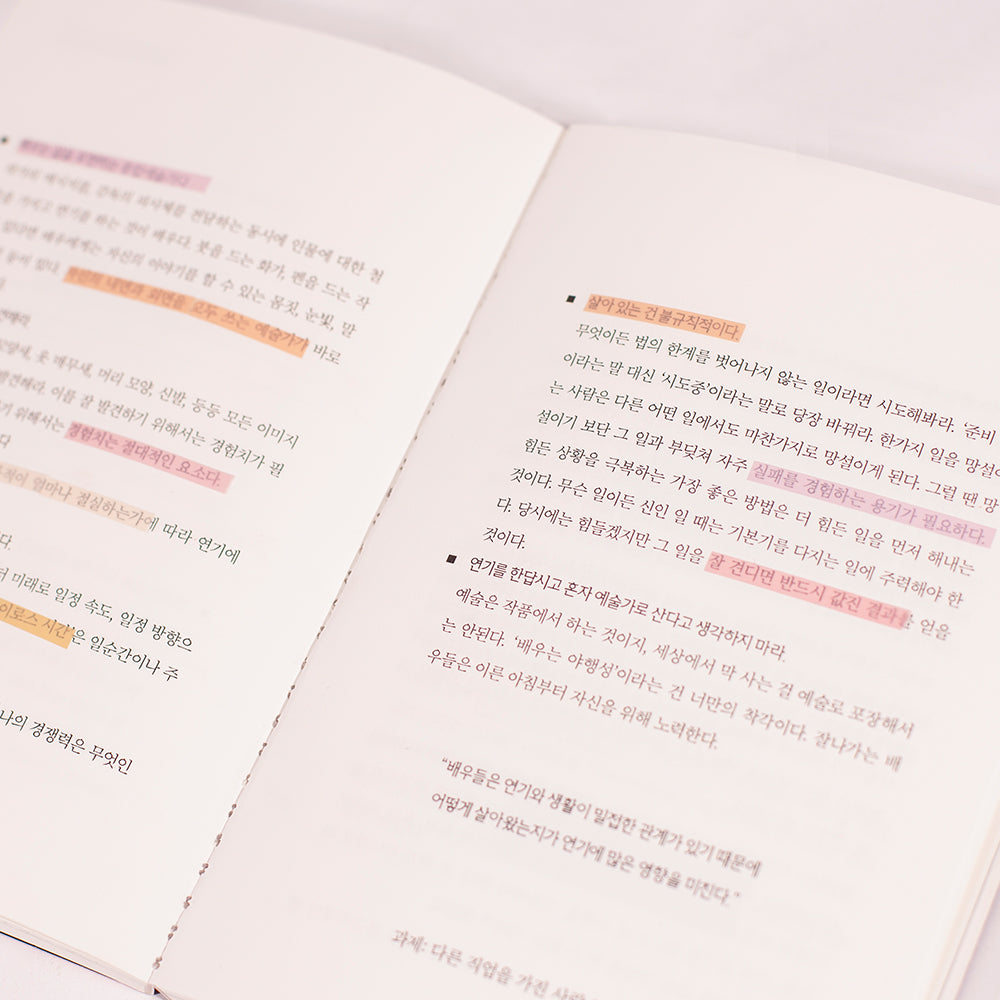 전달하는 동시에 인물에 대한 철
가지고 연기를 하는 것이 배우다. 붓을 드는 화가, 펜을 드는 작
있다면 배우에게는 자신의 이야기를 할 수 있는 몸짓, 눈빛, 말
놓여 있다. 자신의 내면과 외면을 모두 쓰는 예술가가 바로
옷 매무새, 머리 모양, 신발, 등등 모든 이미지
발견해라. 이를 잘 발견하기 위해서는 경험치가 필
위해서는 경험치는 절대적인 요소다.
얼마나 결실하는가에 따라 연기에
다.
미래로 일정 속도, 일정 방향으
이로스 시간'은 일순간이나 주
나의 경쟁력은 무엇인
■ 살아 있는 건 불규칙적이다.
무엇이든 법의 한계를 벗어나지 않는 일이라면 시도해봐라. '준비
이라는 말 대신 '시도중'이라는 말로 당장 바꿔라. 한가지 일을 망설이
는 사람은 다른 어떤 일에서도 마찬가지로 망설이게 된다. 그럴 땐 망
설이기 보단 그 일과 부딪쳐 자주 실패를 경험하는 용기가 필요하다.
힘든 상황을 극복하는 가장 좋은 방법은 더 힘든 일을 먼저 해내는
것이다. 무슨 일이든 신인 일 때는 기본기를 다지는 일에 주력해야 한
다. 당시에는 힘들겠지만 그 일을 잘 견디면 반드시 값진 결과를 얻을
것이다.
■ 연기를 한답시고 혼자 예술가로 산다고 생각하지 마라.
예술은 작품에서 하는 것이지, 세상에서 막 사는 걸 예술로 포장해서
는 안된다. '배우는 야행성'이라는 건 너만의 착각이다. 잘나가는 배
우들은 이른 아침부터 자신을 위해 노력한다.
"배우들은 연기와 생활이 밀접한 관계가 있기 때문에
어떻게 살아왔는지가 연기에 많은 영향을 미친다."
과제: 다른 직업을 가진 사람